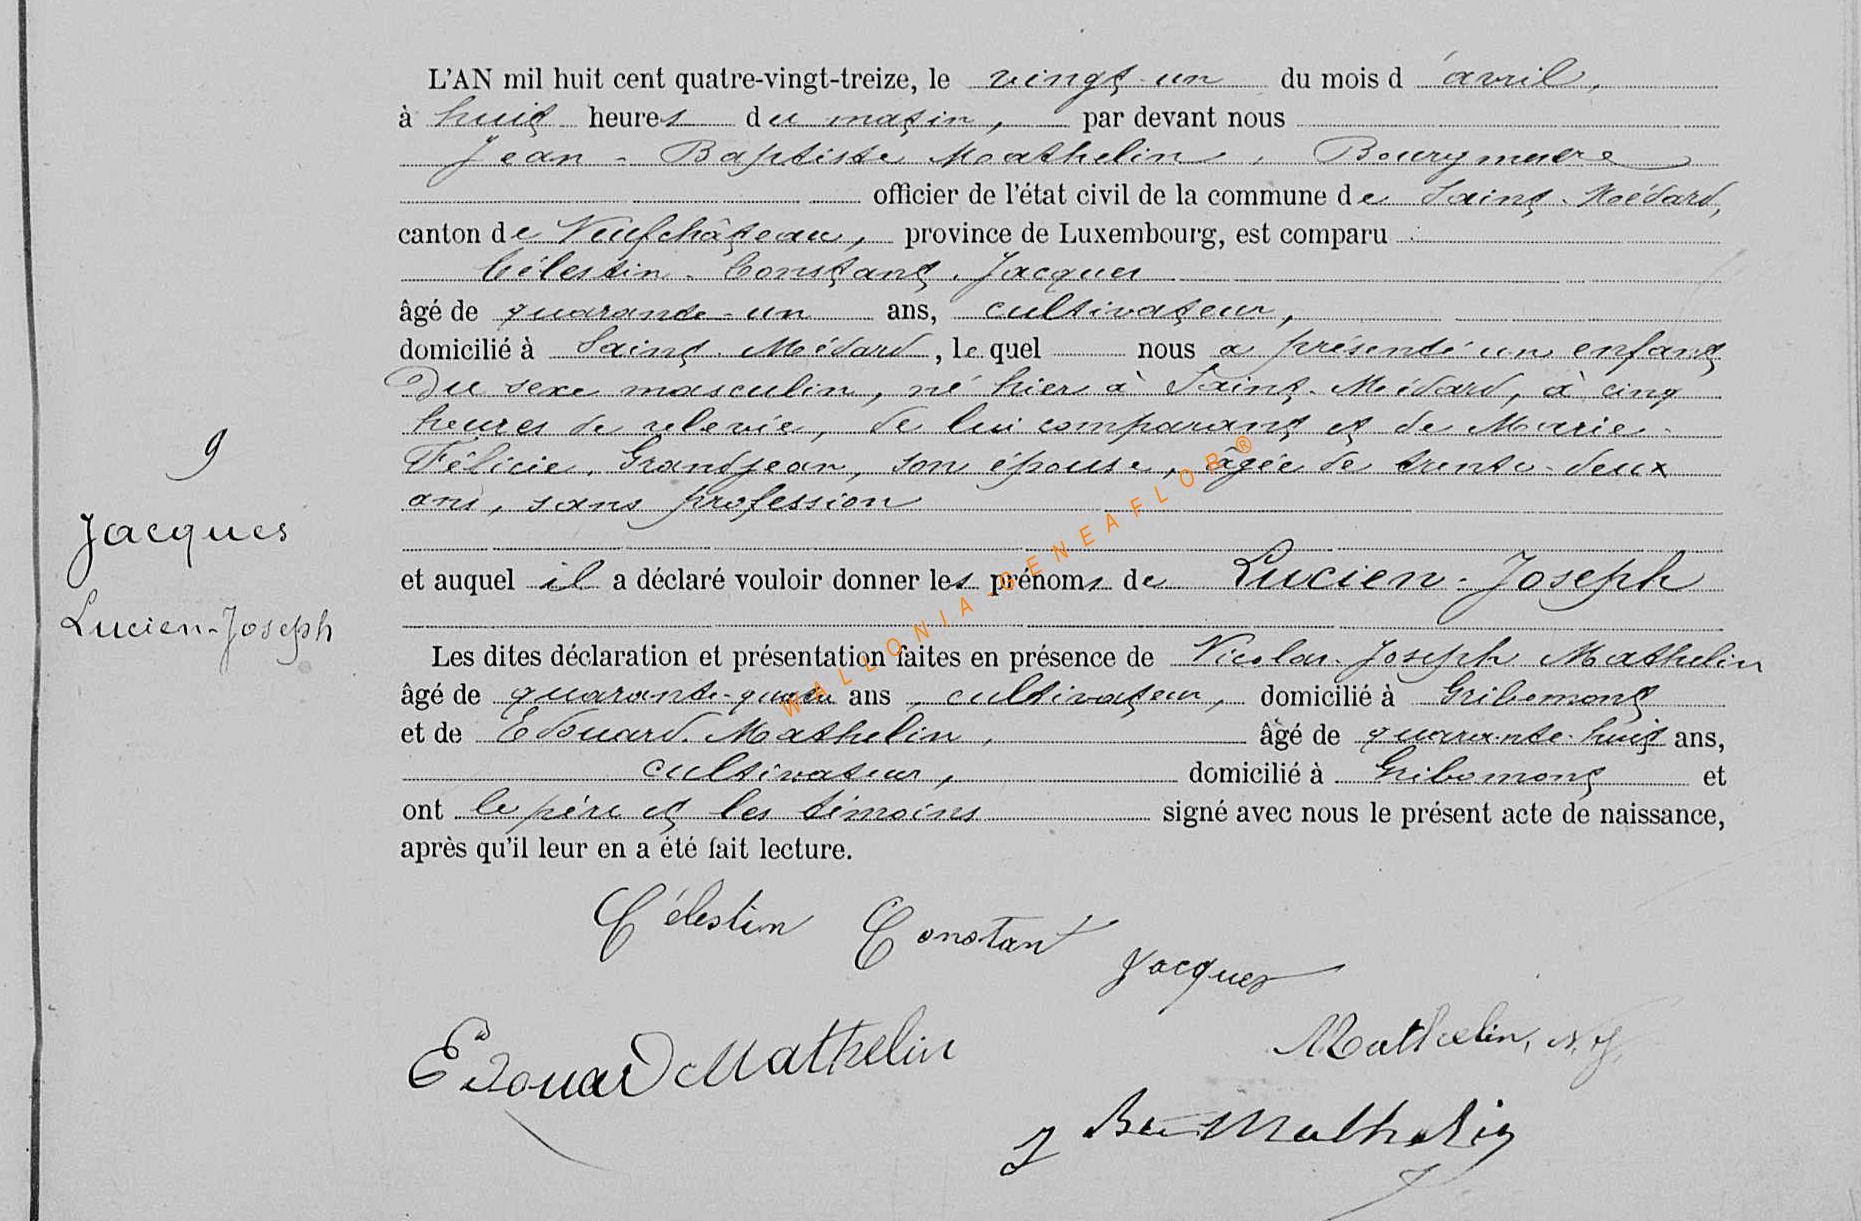 L'AN mil huit cent quatre-vingt-treize, le vingt-un du mois d'avril,
à huit heures du matin, par devant nous
Jean-Baptiste Mathelin, Bourgmestre
officier de l'état civil de la commune de Saint-Médard,
canton de Neufchâteau, province de Luxembourg, est comparu
Célestin-Constant Jacques
âgé de quarante-un ans, cultivateur,
domicilié à Saint-Médard, le quel nous a présenté un enfant
du sexe masculin, né hier à Saint-Médard, à cinq
heures de relevée, de lui comparant et de Marie-
Félicie Grandjean, son épouse, âgée de trente-deux
ans, sans profession
et auquel il a déclaré vouloir donner les prénoms de Lucien-Joseph
Les dites déclaration et présentation faites en présence de Nicolas-Joseph Mathelin
âgé de quarante-quatre ans, cultivateur, domicilié à Gribomont
et de Edouard Mathelin, âgé de quarante-huit ans,
cultivateur, domicilié à Gribomont et
ont le père et les témoins signé avec nous le présent acte de naissance,
après qu'il leur en a été fait lecture.
9
Jacques
Lucien-Joseph
Célestin Constant Jacques
Edouard Mathelin
Mathelin, N. J.
J Bte Mathelin
WALLONIA-GENEAFLOR®